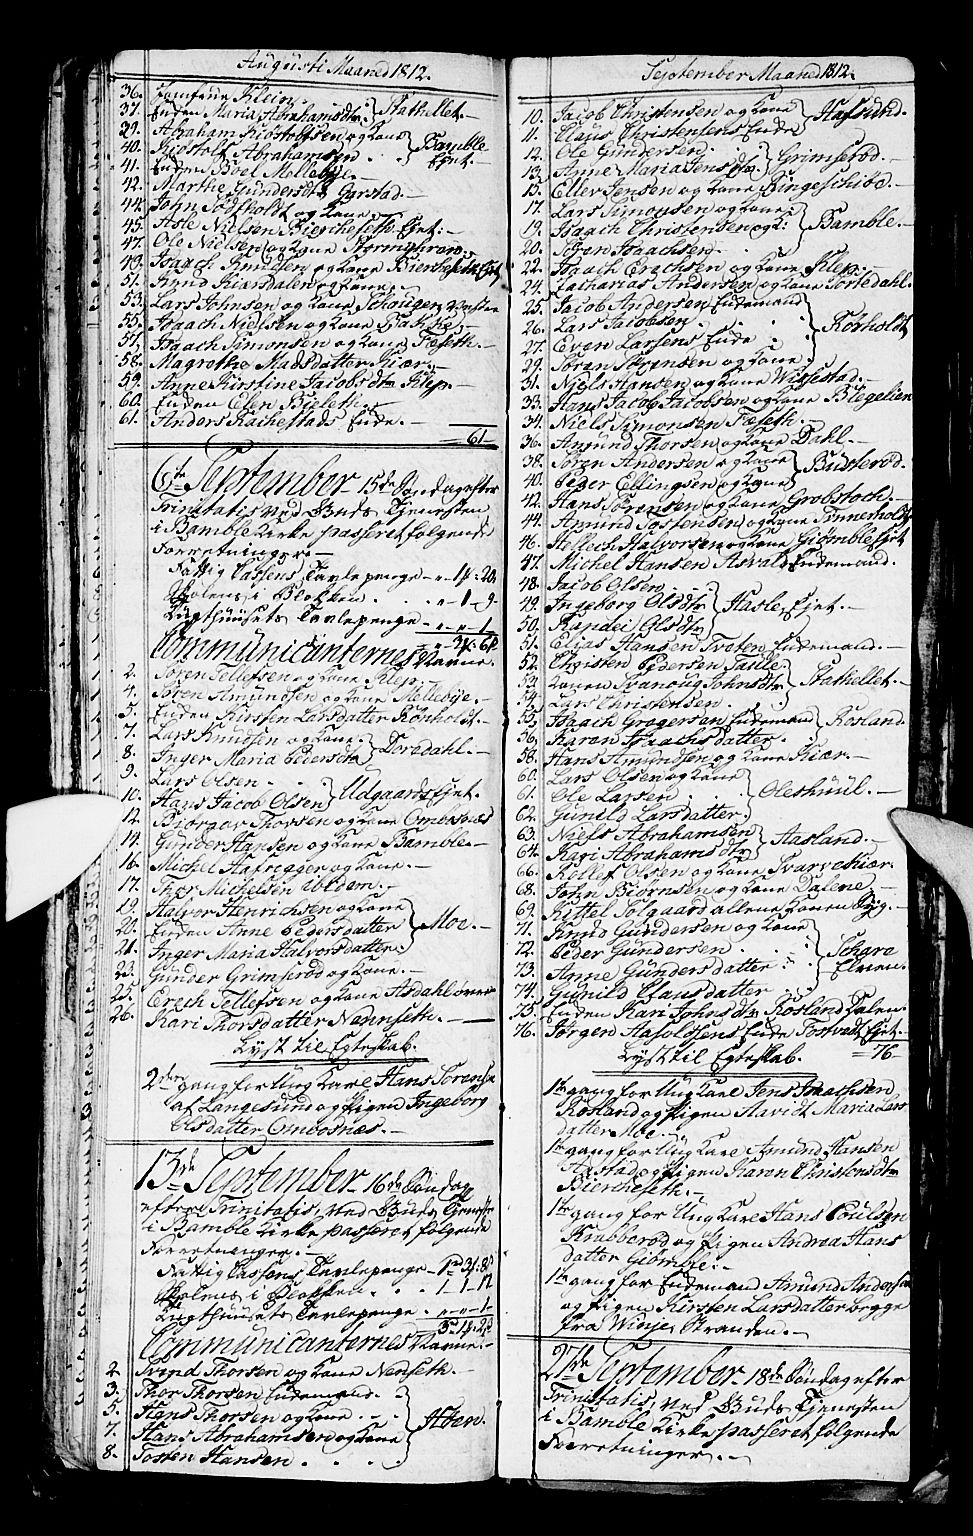 Augusti Maaned 1812.
36. Jomfrue Klein.
37. Enken Maria Abrahamsdtr } Stathellet.
39. Abraham Kidstolsen og Kone
40. Kiestolf Abrahamsen } Bamble
41. Enken Boel Mellebye. Ejet.
42. Marthe Gundersdtr Garstad.
44. John Todskoldt og Kone
45. Asle Nielsen Biercheseth Ejet.
47. Ole Nielsen og Kone Stormyhren.
49. Isaach Knudsen og Kone Biercheseth Ejet
51. Knud Kiærsdalen og Kone.
53. Lars Johnsen og Kone Schougen
55. Isaach Nielsen og Kone Bakke.
57. Isaach Simonsen og Kone Fæseth.
58. Magrethe Madsdatter Kiær.
59. Anne Kirstine Jacobsdtr Klep.
60. Enken Elen Bieleth.
61. Anders Rachestads Enke.
61
6te September 15de Søndag efter
Trinitatis ved Guds Tjenesten
i Bamble Kirke passeret følgende
Forretninger.
Fattig Cassens Tavlepenge - 1 20
Ibidens i Blokken - 1 - 9
Tugthuusets Tavlepenge - 1
Communicanternes Navne.
2. Søren Tellefsen og Kone Klep.
4. Søren Amundsen og Kone Mellebye.
5. Enken Kirsten Larsdatter Rønholdt.
7. Lars Knudsen og Kone
8. Inger Maria Pedersdtr } Toredahl.
9. Lars Olsen
10. Hans Jacob Olsen } Udgaards Ejet.
12. Biørgar Thorsen og Kone Ombordsnes
14. Gunder Hansen og Kone Bamble.
16. Michel Hafregger og Kone.
17. Thor Michelsen ibidem.
19. Halvor Henrichsen og Kone
20. Enken Anne Pedersdatter } Moe.
21. Inger Maria Halvorsdatter
23. Gunder Grimsrød og Kone.
25. Erech Tellefsen og Kone Asdahl øvre
26. Kari Thorsdatter Nenseth.
Lyst til Egteskab.
2den gang for Ung Karl Hans Sørensen
af Langesund og Pigen Ingeborg
Olsdatter Ombosnæs.
13de September 16de Søndag
efter Trinitatis, ved Guds Tjenesten
i Bamble Kirke passeret følgende
Forretninger.
Fattig Cassens Tavlepenge
Ibidens i Blokken 1 - 12
Tugthuusets Tavlepenge - 1
Communicanternes Navne.
2. Svend Thorsen og Kone Nenseth.
3. Thor Thorsen Enkemand.
5. Hans Thorsen og Kone
7. Hans Abrahamsen og Kone } Aaen.
8. Tosten Hansen.
September Maaned 1812.
10. Jacob Christensen og Kone } Hafsund.
11. Claus Christensens Enke
12. Ole Gundersen
13. Anne Maria Jensdtr } Grimserød.
15. Eller Jensen og Kone Ringeschiød.
17. Lars Simonsen og Kone
19. Isaach Christensen og K: } Bamble.
20. Søren Isaachsen.
22. Isaach Erechsen og Kone Klep.
24. Zacharias Andersen og Kone Toredahl.
25. Jacob Andersen Enkemand
26. Lars Jacobsen
27. Even Larsens Enke } Rørholdt
29. Søren Sørensen og Kone
31. Niels Hansen og Kone Wissestad.
33. Hans Jacob Jacobsen og Kone Blegelien
34. Niels Simonsen Fæseth.
36. Amund Thorsen og Kone Dahl.
38. Søren Andersen og Kone } Busterød.
40. Peder Ellingsen og Kone
42. Hans Sørensen og Kone Grobstoch.
44. Amund Tostensen og Kone Tinnerholdt
46. Hellech Halvorsen og Kone Giømble Ejet
47. Michel Hansen Asvald Enkemand.
48. Jacob Olsen
49. Ingeborg Olsdtr } Hasle Ejet.
50. Randei Olsdtr
51. Elias Hansen Tveten Enkemand.
52. Christen Pedersen Saele
53. Konen Svanaug Johnsdtr } Stathellet.
54. Lars Christensen.
55. Isaach Gregersen Enkemand } Rosland.
56. Karen Isaachsdatter.
58. Hans Amundsen og Kone Kiær.
60. Lars Olsen og Kone
61. Ole Larsen } Oleshuul.
62. Gunild Larsdatter
63. Niels Abrahamsen } Aasland.
64. Kari Abrahamsdtr
66. Killef Olsen og Kone Svarveskiær.
68. John Biørnsen og Kone Dalene.
69. Kittel Solgaard allene Konen syg.
71. Knud Gundersen og Kone
72. Peder Gundersen } Schare
73. Anne Gundersdatter Elven.
74. Gunild Clausdatter
75. Enken Kari Johnsdtr Rosland Dalen.
76. Jørgen Hasoldsens Enke Tostvedt Ejet.
= 76 -
Lyst til Egteskab.
1te gang for Ung Karl Jens Isaachsen
Rosland og Pigen Mari Maria Lars
datter Moe.
1te gang for Ung Karl Amund Hansen
Aistad og Pigen Karen Christensdtr
Biercheseth.
1te gang for Ung Karl Hans Poulsen
Krabberød og Pigen Andrea Hans
datter Giømble.
1te gang for Enkemand Amund Andersen
og Pigen Kirsten Larsdatter begge
fra Winje Stranden.
27de September 18de Søndag efter
Trinitatis, ved Guds Tjenesten
i Bamble Kirke passeret følgende
Forretninger.